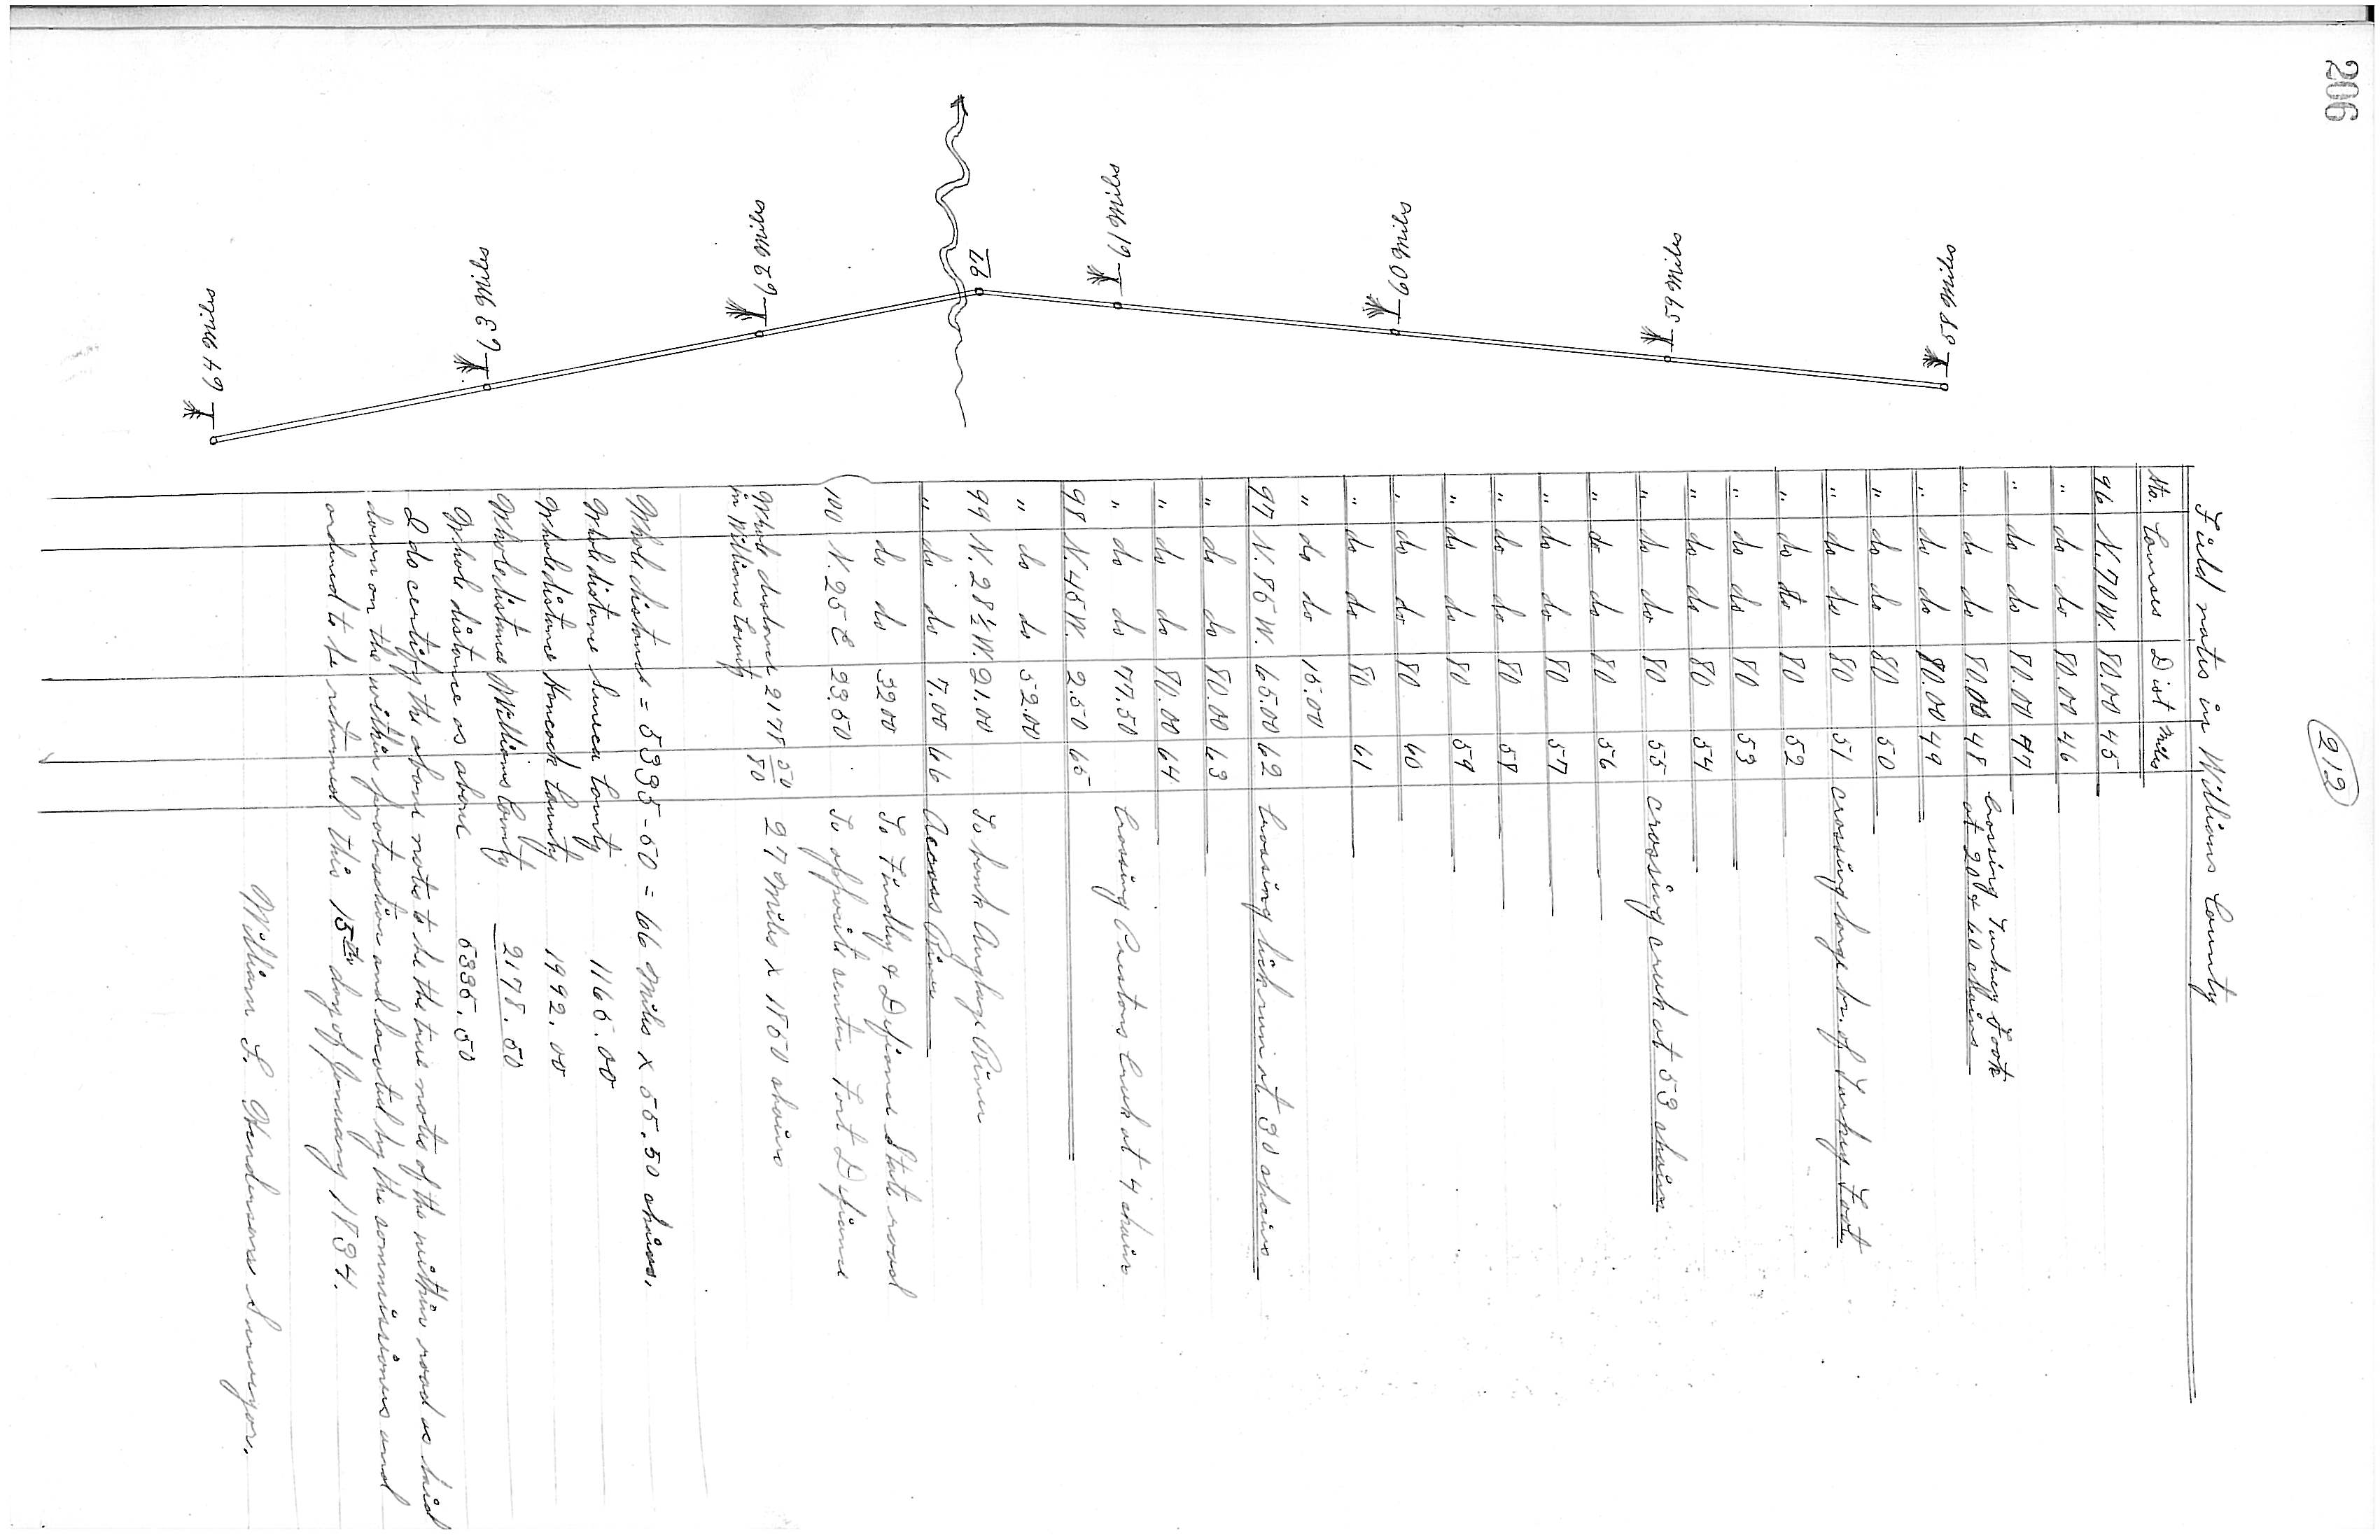 206
212
Field notes in Williams County
Sta. Courses Dist Miles
96 N. 70 W. 80.00 45
" do do 80.00 46
" do do 80.00 47 Crossing Turkey Foot
" do do 80.00 48 at 20 & 60 chains
" do do 80.00 49
" do do 80 50
" do do 80 51 crossing large br. of Turkey Foot
" do do 80 52
" do do 80 53
" do do 80 54
" do do 80 55 crossing creek at 53 chains
" do do 80 56
" do do 80 57
" do do 80 58
" do do 80 59
" do do 80 60
" do do 80 61
" do do 15.00
97 N. 85 W. 65.00 62 Crossing lick run at 30 chains
" do do 80.00 63
" do do 80.00 64
" do do 77.50 Crossing Prestons Creek at 4 chain
98 N. 45 W. 2.50 65
" do do 52.00
99 N. 28 1/2 W. 21.00 To bank Auglaize River
" do do 7.00 66 Across River
do do 32 00 To Findley & Defiance State road
100 N. 25 E 23.50 To opposite center Fort Defiance
Whole distance 2178 50/80 27 Miles x 18 50 chains
in Williams County
Whole distance = 5335-50 = 66 Miles x 55.50 chains.
Whole distance Seneca County 1165.00
Whole distance Hancock County 1992.00
Whole distance Williams County 2178.50
Whole distance as above 5335.50
I do certify the above notes to be the true notes of the within road as laid
down on the within protraction and located by the commissioners and
ordered to be returned this 15th day of January 1834.
William L. Henderson Surveyor.
58 Miles
59 Miles
60 Miles
61 Miles
97
62 Miles
63 Miles
64 Miles